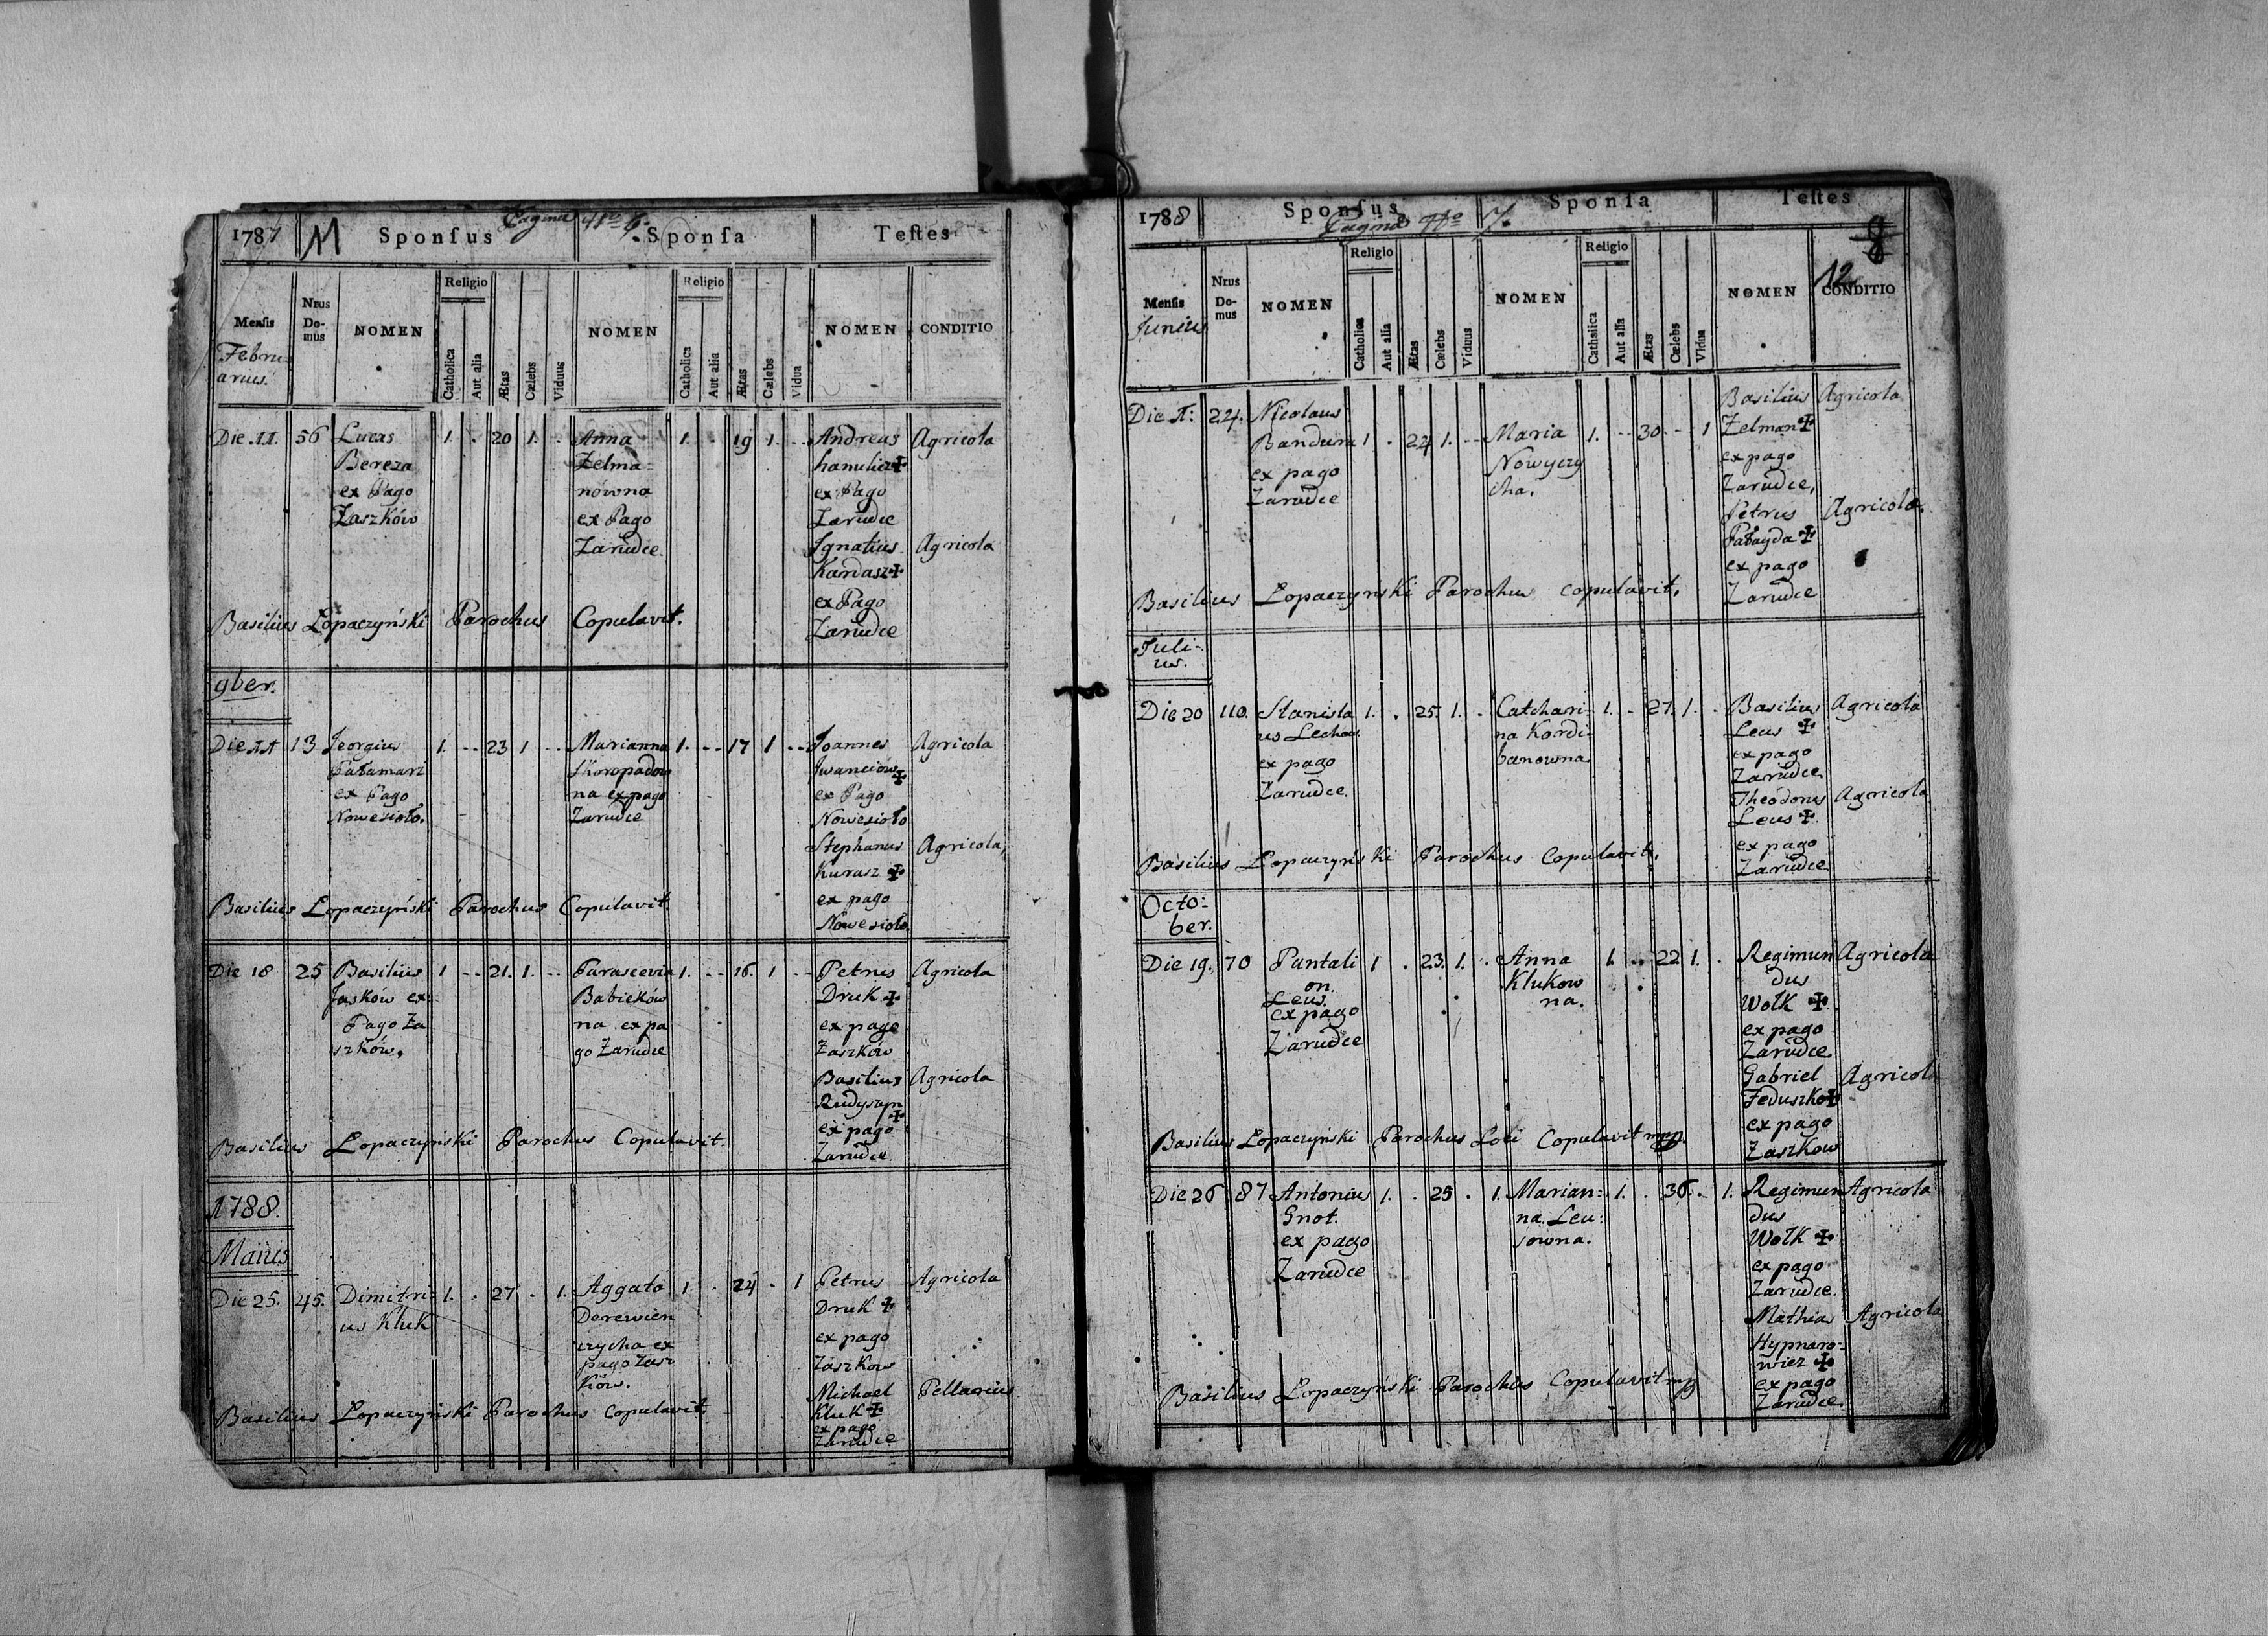 1787 M Sponſus Pagina Nro 6. Sponſa Teſtes
Menſis Nrus Domus NOMEN Religio Catholica Aut alia Ætas Cælebs Viduus NOMEN Religio Catholica Aut alia Ætas Cælebs Vidua NOMEN CONDITIO
Febru=
arius.
Die 11. 56 Lucas 1. . 20 1. . Anna 1. . 19 1. .. Andreas Agricola
Bereza Zelma= hanulicz ✠
ex Pago nówna ex Pago
Zaszków ex Pago Zarudce
Zarudce Ignatius Agricola
Kardasz ✠
ex Pago
Basilius Łopaczyński Parochus Copulavit. Zarudce
9ber.
Die 11 13 Jeorgius 1. .. 23 1 .. Marianna 1. .. 17 1 .. Joannes Agricola
Pałamarz Skoropadow Iwanciow ✠
ex Pago na ex pago ex Pago
Nowesioło. Zarudce Nowesioło
Stephanus Agricola,
Kurasz ✠
ex pago
Basilius Łopaczyński Parochus Copulavit. Nowesioło
Die 18 25 Basilius 1 .. 21. 1. .. Parascevia 1. .. 16. 1 .. Petrus Agricola
Jasków ex Babieków Druk ✠
Pago Za na ex pa ex pago
szków. go Zarudce Zaszków
Basilius Agricola
Rudyszyn ✠
ex pago
Basilius Łopaczyński Parochus Copulavit. Zarudce
1788.
Maius
Die 25. 45. Dimitri= 1. . 27 . 1. Aggata 1 . 24 . 1 Petrus Agricola
us Kluk Derewien Druk ✠
czycha ex ex pago
pago Zasz Zaszkow
ków. Michael Pellarius
Kluk ✠
ex pago
Basilius Łopaczyński Parochus Copulavit. Zarudce
1788 Sponſus Pagina Nro 7. Sponſa Teſtes 8
12
Menſis Nrus Domus NOMEN Religio Catholica Aut alia Ætas Cælebs Viduus NOMEN Religio Catholica Aut alia Ætas Cælebs Vidua NOMEN CONDITIO
Junius
Basilius Agricola
Die 1: 24. Nicolaus Zelman ✠
Bandura 1 . 24 1. .. Maria 1. .. 30 .. 1 ex pago
ex pago Nowyczy Zarudce,
Zarudce cha. Petrus Agricola.
Pałayda ✠
ex pago
Basilius Łopaczyński Parochus copulavit. Zarudce
Juli=
us.
Die 20 110. Stanisla 1. . 25. 1. . Catchari= 1. . 27. 1. . Basilius Agricola
us Lechow na Kordi Leus ✠
ex pago banowna ex pago
Zarudce. Zarudce
Theodorus Agricola
Leus ✠.
ex pago
Basilius Łopaczyński Parochus Copulavit. Zarudce
Octo=
ber.
Die 19. 70 Pantali 1 . 23. 1. . Anna 1. .. 22 1. . Regimun Agricola
on. Klukow dus
Leus. na. Wolk ✠
ex pago ex pago
Zarudce Zarudce.
Gabriel Agricola
Feduszko ✠
ex pago
Basilius Łopaczyński Parochus Loci Copulavit mpp. Zaszkow
Die 26 87 Antonius 1. . 25 . 1. Marian= 1. . 36. . 1. Regimun Agricola
Gnot. na Leu= dus
ex pago sowna. Wolk ✠
Zarudce ex pago
Zarudce.
Mathias Agricola
Hypnaro=
wicz ✠
ex pago
Basilius Łopaczyński Parochus Copulavit mp Zarudce.